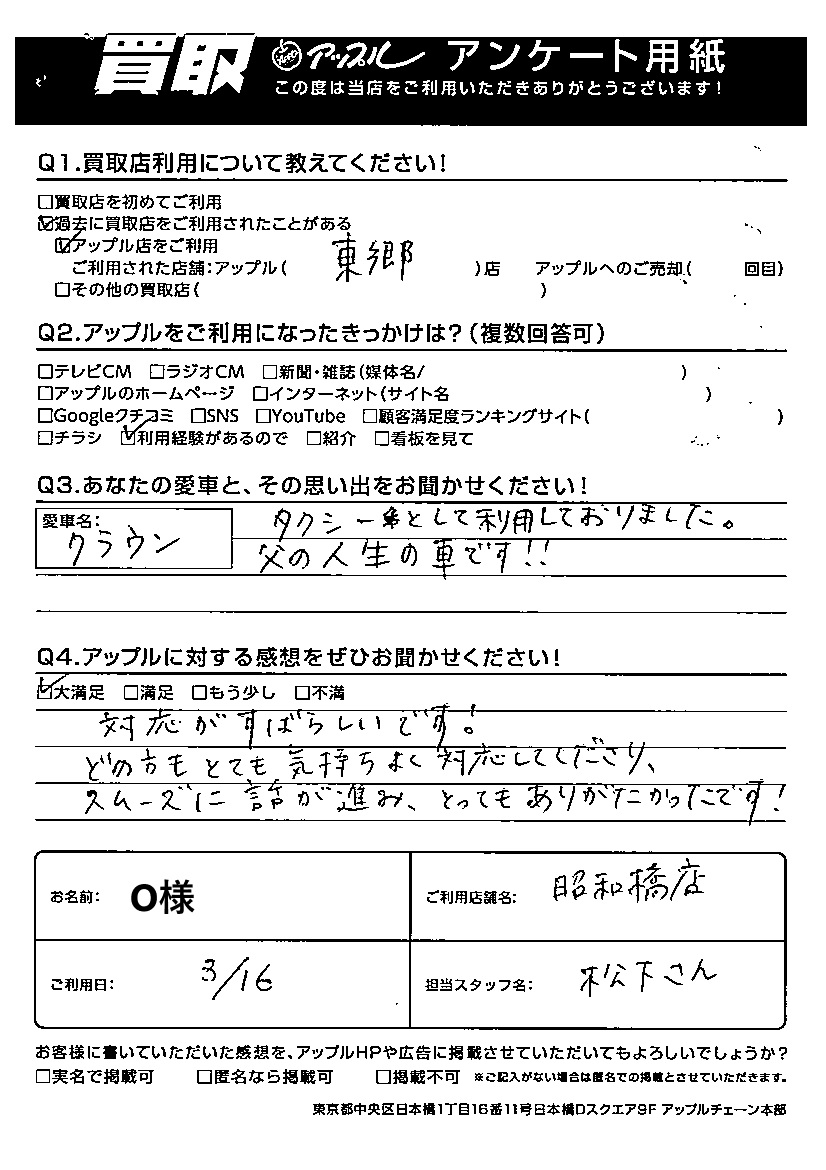 買取 アップル アンケート用紙
この度は当店をご利用いただきありがとうございます!
Q1.買取店利用について教えてください!
□買取店を初めてご利用
☑過去に買取店をご利用されたことがある
☑アップル店をご利用
ご利用された店舗:アップル( 東郷 )店 アップルへのご売却( 回目)
□その他の買取店( )
Q2.アップルをご利用になったきっかけは?(複数回答可)
□テレビCM □ラジオCM □新聞・雑誌(媒体名/ )
□アップルのホームページ □インターネット(サイト名 )
□Googleクチコミ □SNS □YouTube □顧客満足度ランキングサイト( )
□チラシ ☑利用経験があるので □紹介 □看板を見て
Q3.あなたの愛車と、その思い出をお聞かせください!
愛車名:
クラウン
タクシー車として利用しておりました。
父の人生の車です!!
Q4.アップルに対する感想をぜひお聞かせください!
☑大満足 □満足 □もう少し □不満
対応がすばらしいです!
どの方もとても気持ちよく対応してくださり、
スムーズに話が進み、とってもありがたかったです!
お名前: O様 ご利用店舗名: 昭和橋店
ご利用日: 3/16 担当スタッフ名: 松下さん
お客様に書いていただいた感想を、アップルHPや広告に掲載させていただいてもよろしいでしょうか?
□実名で掲載可 □匿名なら掲載可 □掲載不可 ※ご記入がない場合は匿名での掲載とさせていただきます。
東京都中央区日本橋1丁目16番11号日本橋Dスクエア9F アップルチェーン本部